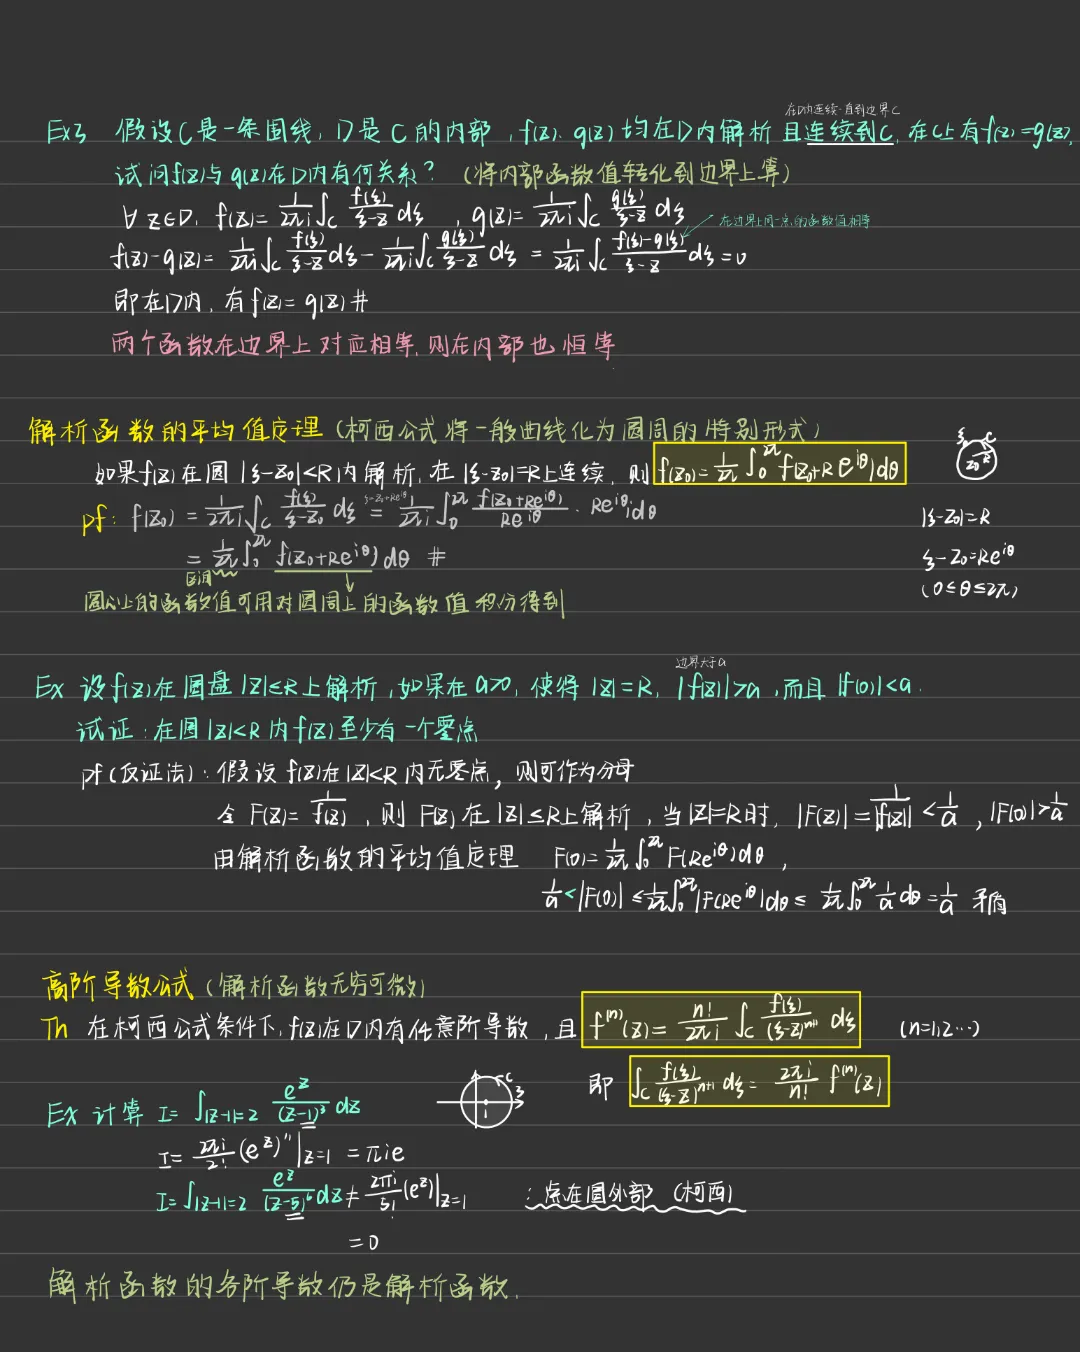 在D内连续一直到边界C
Ex3 假设C是一条围线, D是C的内部, f(z). g(z)均在D内解析且连续到C, 在C上有f(z)=g(z),
试问f(z)与g(z)在D内有何关系? (将内部函数值转化到边界上算)
∀ z∈D, f(z)= 1/2πi ∫_C f(ξ)/(ξ-z) dξ , g(z)= 1/2πi ∫_C g(ξ)/(ξ-z) dξ
在边界上同一点的函数值相等
f(z)-g(z)= 1/2πi ∫_C f(ξ)/(ξ-z) dξ - 1/2πi ∫_C g(ξ)/(ξ-z) dξ = 1/2πi ∫_C (f(ξ)-g(ξ))/(ξ-z) dξ = 0
即在D内, 有f(z)= g(z) #
两个函数在边界上对应相等, 则在内部也恒等
解析函数的平均值定理 (柯西公式将一般曲线化为圆周的特别形式)
如果f(z)在圆 |ξ-z₀|<R内解析, 在|ξ-z₀|=R上连续, 则 f(z₀)= 1/2π ∫₀^2π f(z₀+R e^iθ)dθ
ξ C
z₀ R
pf: f(z₀) = 1/2πi ∫_C f(ξ)/(ξ-z₀) dξ =(ξ-z₀=Re^iθ) 1/2πi ∫₀^2π f(z₀+Re^iθ)/Re^iθ · Re^iθ i dθ
|ξ-z₀|=R
= 1/2π ∫₀^2π f(z₀+Re^iθ) dθ #
ξ-z₀=Re^iθ
区间
(0≤θ≤2π)
圆心上的函数值可用对圆周上的函数值积分得到
边界大于a
Ex 设f(z)在圆盘|z|≤R上解析, 如果在a>0, 使得 |z|=R, |f(z)|>a, 而且 |f(0)|<a.
试证: 在圆|z|<R内f(z)至少有一个零点
pf(反证法): 假设 f(z)在|z|<R内无零点, 则可作为分母
令 F(z)= 1/f(z) , 则 F(z)在|z|≤R上解析, 当|z|=R时, |F(z)|= 1/|f(z)| < 1/a , |F(0)|> 1/a
由解析函数的平均值定理 F(0)= 1/2π ∫₀^2π F(Re^iθ)dθ ,
1/a < |F(0)| ≤ 1/2π ∫₀^2π |F(Re^iθ)|dθ ≤ 1/2π ∫₀^2π 1/a dθ = 1/a 矛盾
高阶导数公式 (解析函数无穷可微)
Th 在柯西公式条件下, f(z)在D内有任意阶导数, 且 f^(n)(z)= n!/2πi ∫_C f(ξ)/(ξ-z)^n+1 dξ (n=1,2…)
即 ∫_C f(ξ)/(ξ-z)^n+1 dξ = 2πi/n! f^(n)(z)
C
3
1
Ex 计算 I= ∫_|z-1|=2 e^z/(z-1)^3 dz
I= 2πi/2! (e^z)''|_z=1 = πie
I= ∫_|z-1|=2 e^z/(z-5)^6 dz ≠ 2πi/5! (e^z)|_z=1 ∵点在圆外部 (柯西)
= 0
解析函数的各阶导数仍是解析函数.